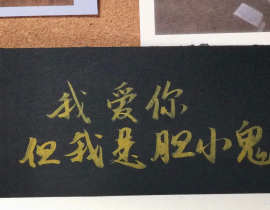 我爱你
但我是胆小鬼